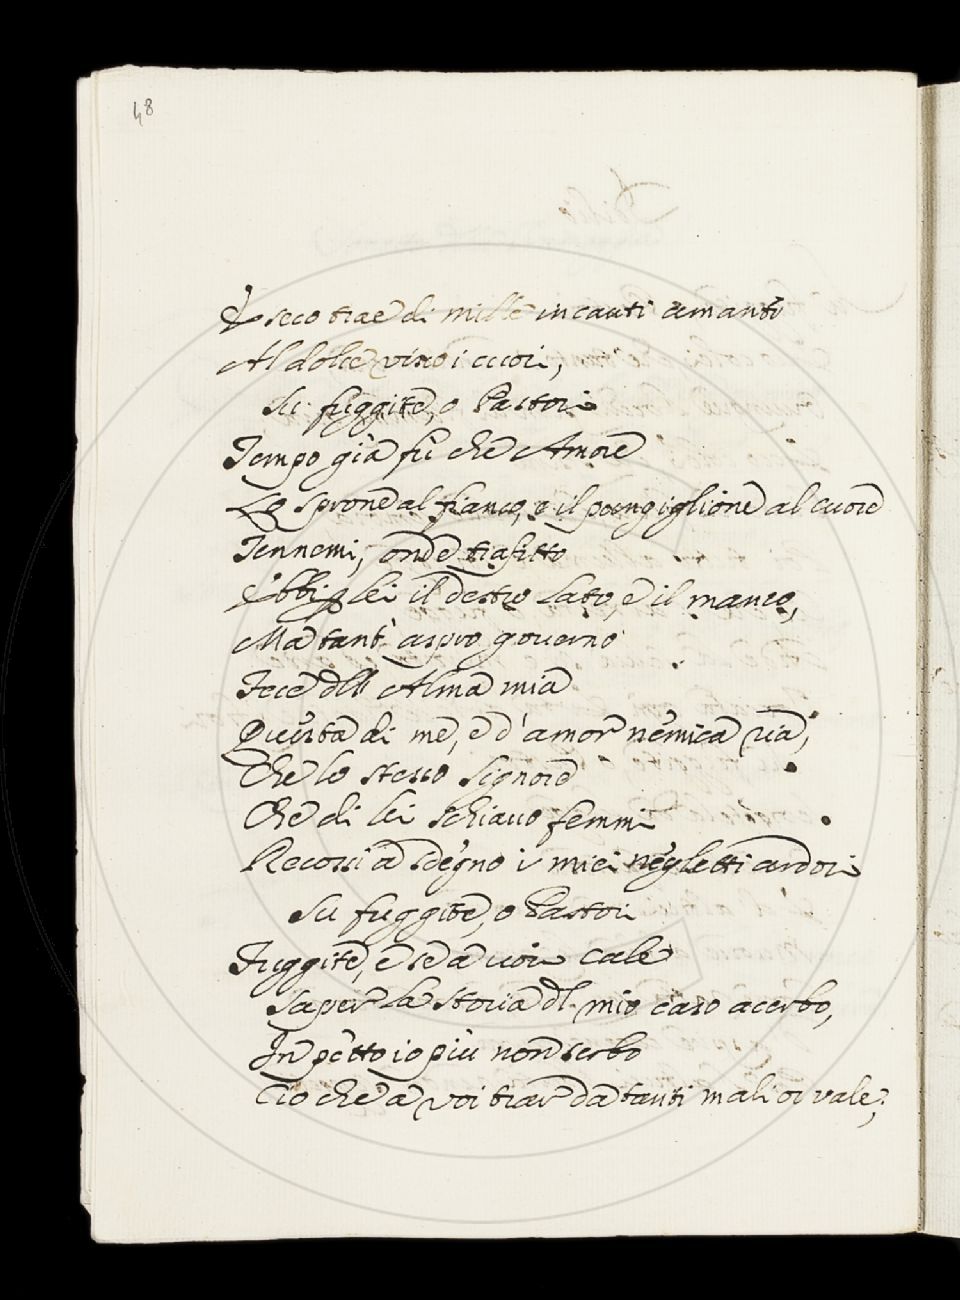 48
E seco trae di mille incauti amanti
Al dolce viso i cuori,
Su fuggite, o Pastori
Tempo già fù che Amore
Lo sprone al fianco, e il pongiglione al cuore
Tennemi, onde trafitto
Ebbi p lei il destro lato, e il manco,
Ma tant' aspro governo
Fece dll Alma mia
Questa di me, e d'amor nemica ria,
Che lo stesso Signore
Che di lei schiavo femmi
Recossi a sdegno i miei negletti ardori
Su fuggite, o Pastori
Fuggite, e se a voi cale
Saper la storia dl mio caso acerbo,
In petto io più non serbo
Ciò che a voi trar da tanti mali or vale;